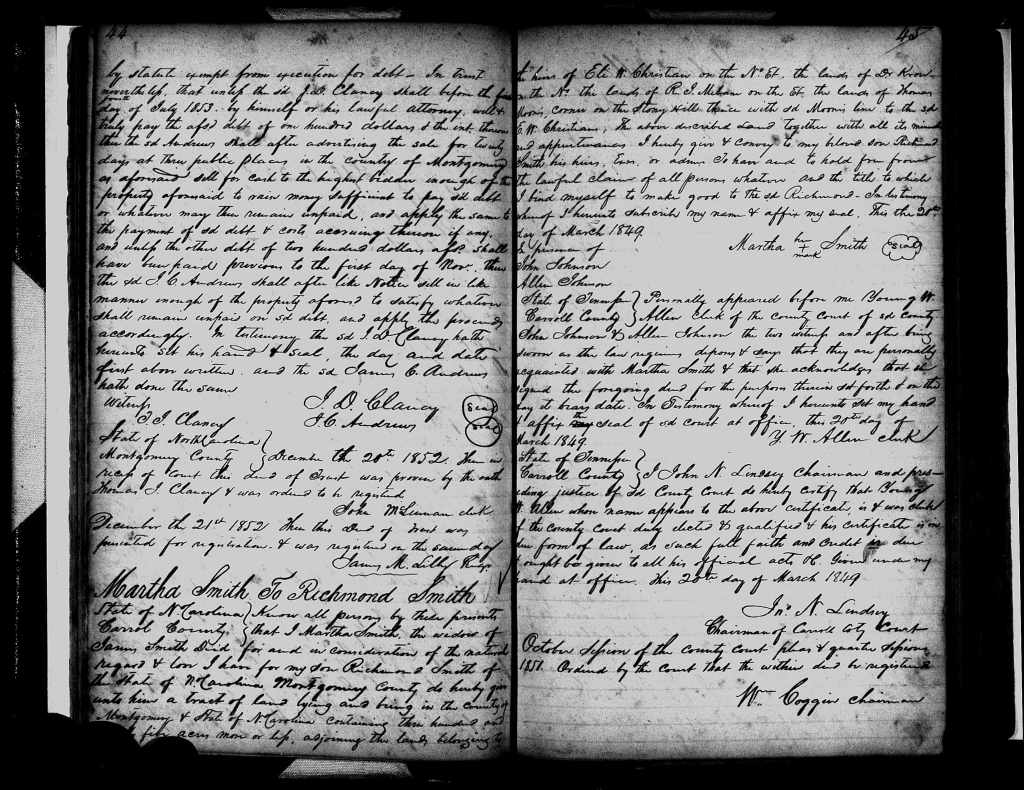 44
by statute exempt from execution for debt - In trust
nevertheless, that unless the sd J.D. Clancy shall before the first
day of July 1853. by himself or his lawful attorney, well &
truly pay the afsd debt of one hundred dollars & the int. thereon
then the sd Andrews shall after advertising the sale for twenty
days at three public places in the county of Montgomery
as aforesaid sell for cash to the highest bidder enough of the
property aforesaid to raise money sufficient to pay sd debt
or whatever may then remain unpaid, and apply the same to
the payment of sd debt & costs accruing thereon if any.
and unless the other debt of two hundred dollars afsd shall
have been paid previous to the first day of Nov. then
the sd J. C. Andrews shall after like Notice sell in like
manner enough of the property aforesd to satisfy whatever
shall remain unpaid on sd debt, and apply the proceeds
accordingly. In testimony the sd J.D. Clancy hath
hereunto set his hand & seal, the day and date
first above written. and the sd James C. Andrews
hath done the same
Witness
J. D. Clancy Seal
T. J. Clancy
J. C. Andrews Seal
State of North Carolina
Montgomery County } December the 20th 1852. Then in
recess of Court this deed of Trust was proven by the oath
Thomas J. Clancy & was ordered to be registered
John McLennan clk
December th 21st 1852 Then this Deed of Trust was
presented for registration. & was registered on the same day
James M. Lilly Regr.
Martha Smith To Richmond Smith
State of N Carolina } Know all persons by these presents
Carrol County } that I Martha Smith, the widow of
James Smith Decd for and in consideration of the natural
regard & love I have for my son Richmond Smith of
the State of N. Carolina Montgomery County do hereby give
unto him a tract of land lying and being in the county of
Montgomery & State of N Carolina containing three hundred and
five acres more or less, adjoining the lands belonging to
45
the heirs of Eli W. Christian on the No Et. the lands of Dr
on the No. the lands of R. J. on the Et. the lands of Thomas
Moons, corner on the Stony Hill thence with sd Moons line to the sd
E. W. Christians, The above described Land together with all its
and appurtenances I hereby give & convey to my beloved son Richmond
Smith his heirs, exrs. or admrs To have and to hold free from
the lawful claim of all persons whatever and the title to which
I bind myself to make good to the sd Richmond - In testimony
whereof I hereunto subscribe my name & affix my seal. This the 20th
day of March 1849
In presence of
Martha her + mark Smith Seal
John Johnson
Allen Johnson
State of Tennessee } Personally appeared before me Young W.
Carroll County } Allen clerk of the county court of sd county
John Johnson & Allen Johnson the two witness and after being
sworn as the law requires deposes & says that they are personally
acquainted with Martha Smith & that she acknowledges that she
signed the foregoing deed for the purposes therein set forth & on the
day it bears date. In Testimony whereof I hereunto set my hand
& affix the seal of sd court at office, this 20th day of
March 1849.
Y. W. Allen clerk
State of Tennessee
Carroll County } I John N. Lindsey Chairman and pres-
iding justice of sd County Court do hereby certify that Young
W. Allen whose name appears to the above certificate, is & was clerk
of the county court duly elected & qualified & his certificate is in
due form of law, as such full faith and credit is due
& ought be given to all his official acts &. Given under my
hand at office. This 20th day of March 1849
Jno N. Lindsey
Chairman of Carroll Cty Court
October Session of the County Court pleas & quarter sessions
1851. Ordered by the Court that the within deed be registered
Wm Coggin chairman